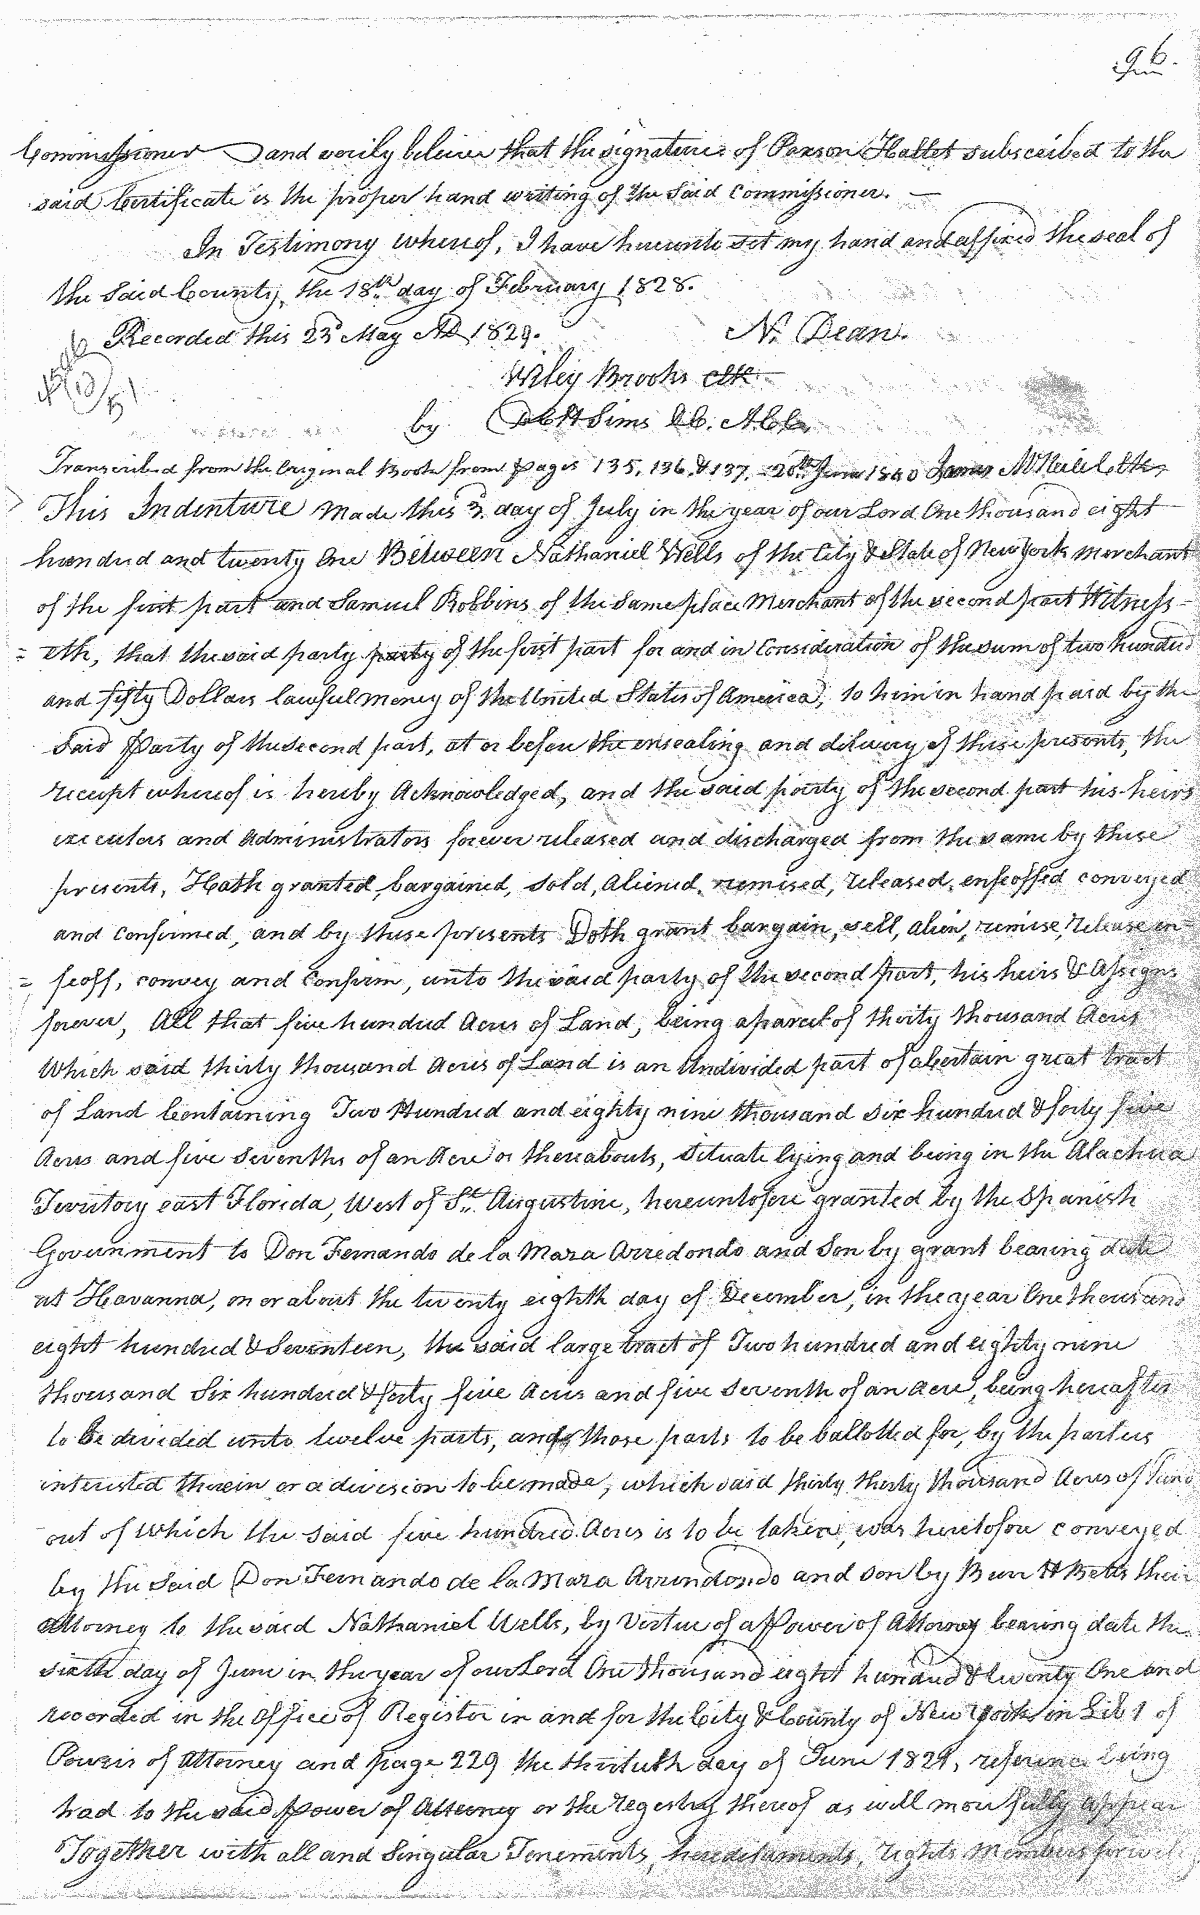 96.
Commissioner and verily believe that the signature of Parson Hallet subscribed to the
said Certificate is the proper hand writing of the said Commissioner. —
In Testimony whereof, I have hereunto set my hand and affixed the seal of
the said County, the 18th day of February 1828.
Recorded this 23d May AD 1829. N. Dean.
Wiley Brooks Clk
by Sims DC. A.C.C.
Transcribed from the Original Book from pages 135, 136, & 137. 20th June 1840 James McNeill Clk
This Indenture Made this 3d day of July in the year of our Lord One thousand eight
hundred and twenty One Between Nathaniel Wells of the City & State of New York Merchant
of the first part and Samuel Robbins of the same place Merchant of the second part Witness-
= eth, that the said party party of the first part for and in Consideration of the sum of two hundred
and fifty Dollars lawful money of the United States of America, to him in hand paid by the
Said Party of the second part, at or before the ensealing and delivery of these presents, the
receipt whereof is hereby Acknowledged, and the said party of the second part his heirs
executors and Administrators forever released and discharged from the same by these
presents, Hath granted, bargained, sold, Aliened, remised, released, enfeoffed conveyed
and confirmed, and by these presents Doth grant bargain, sell, alien, remise, release en-
= feoff, convey and confirm, unto the said party of the second part, his heirs & Assigns
forever, All that five hundred Acres of Land, being a parcel of thirty thousand Acres
Which said thirty thousand Acres of Land is an Undivided part of a Certain great tract
of Land Containing Two Hundred and eighty nine thousand six hundred & forty five
Acres and five Sevenths of an Acre or thereabouts, Situate lying and being in the Alachua
Territory east Florida, West of St. Augustine, hereuntofore granted by the Spanish
Government to Don Fernando de la Maza Arredondo and Son by grant bearing date
at Havanna, on or about the twenty eighth day of December, in the year One thousand
eight hundred & Seventeen, the said large tract of Two hundred and eighty nine
thousand Six hundred & forty five Acres and five Seventh of an Acre, being hereafter
to Be divided unto twelve parts, and those parts to be ballotted for, by the parties
interested therein or a division to be made, which said thirty thirty thousand Acres of Land
out of Which the said five hundred Acres is to be taken, was heretofore conveyed
by the Said Don Fernando de la Maza Arrindondo and son by Burr H Betts their
Attorney to the said Nathaniel Wells, by Virtue of a Power of Attorney bearing date the
sixth day of June in the year of our Lord One thousand eight hundred & twenty One and
recorded in the Office of Register in and for the City & County of New York in Lib 1 of
Powers of Attorney and page 229 the thirtieth day of June 1821, reference being
had to the said power of Attorney or the registry thereof as will more fully appear
Together with all and Singular Tenements, hereditaments, rights Members